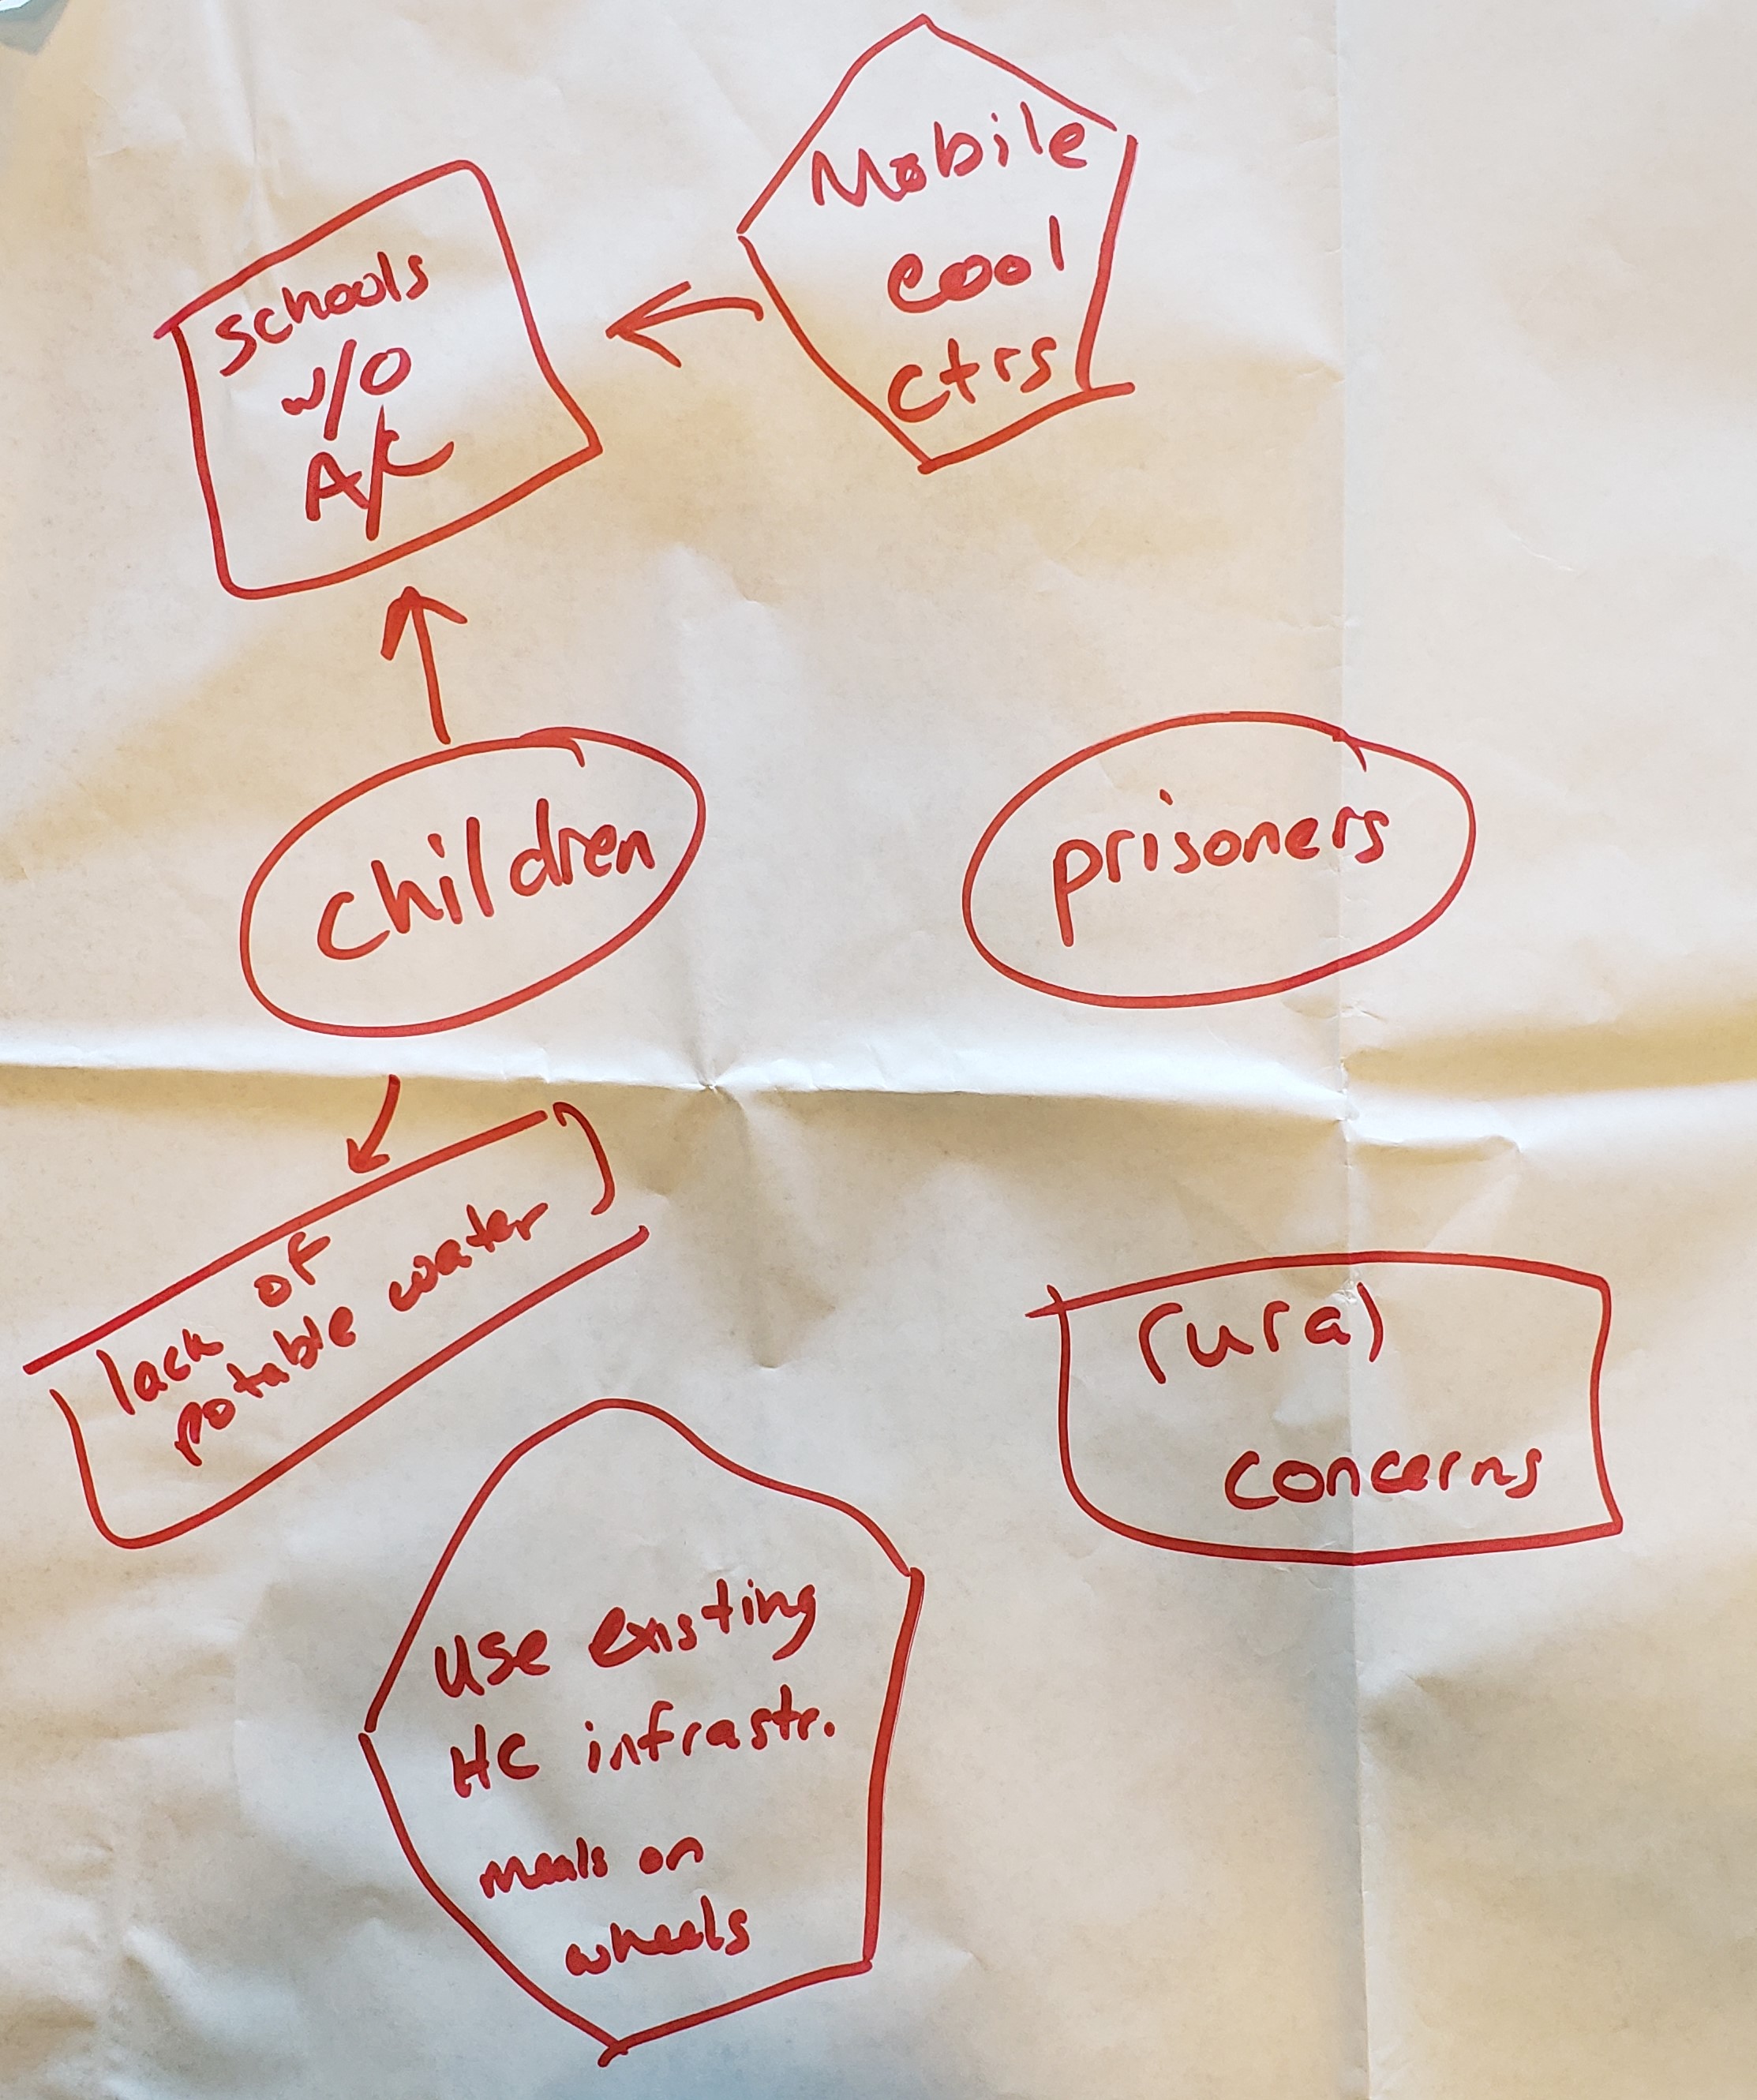 Mobile
cool
ctrs
schools
w/o
A/C
children
prisoners
lack of
potable water
rural
concerns
use existing
HC infrastr.
meals on
wheels